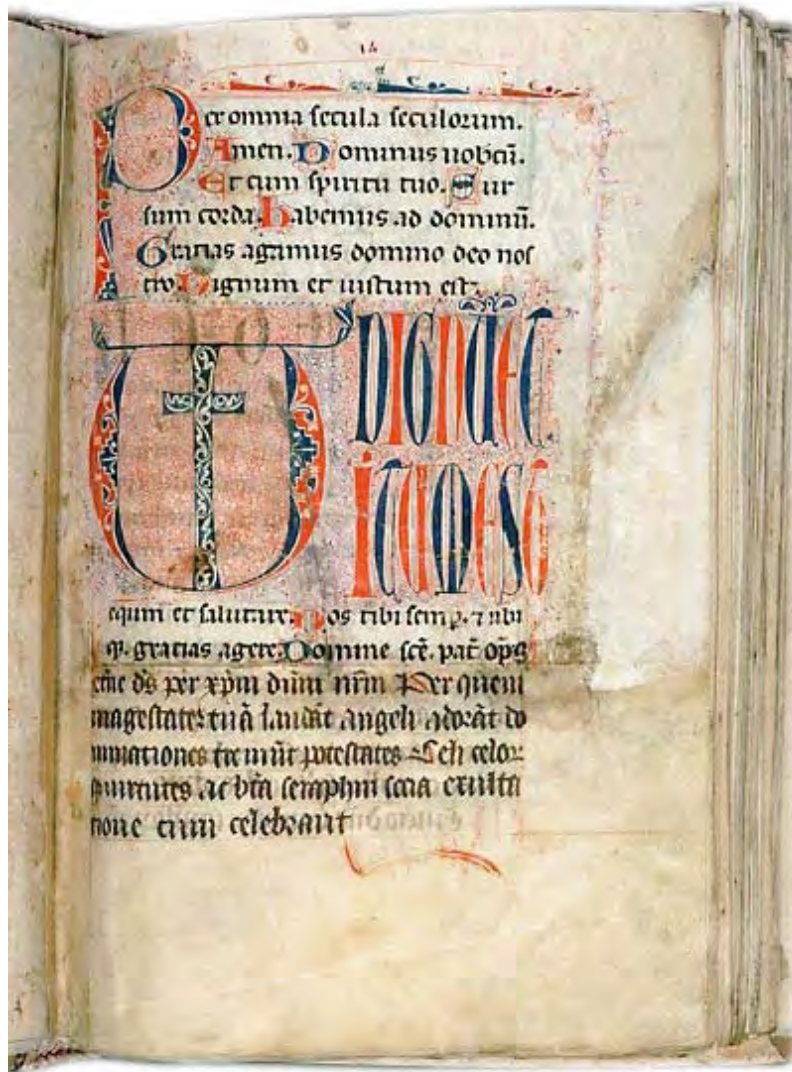 Per omnia secula seculorum.
Amen. Dominus uobcū.
Et cum spiritu tuo. Sur
sum corda. habemus ad dominū.
Gratias agamus domino deo nos
tro. Dignum et iustum est.
U DIGNŪ ET
IUSTUM EST
equm et salutare. Nos tibi semp. ⁊ ubi
qꝫ gratias agere. Domine scē. pat̄ op̄s
et̄ne d̄s per xp̄m dūm nr̄m Per quem
magestatē tuā laudāt angeli adorāt do
minationes tremūt potestates Celi celoꝝ
quirtutes ac bt̄a seraphin socia exulta
tione cum celebrant